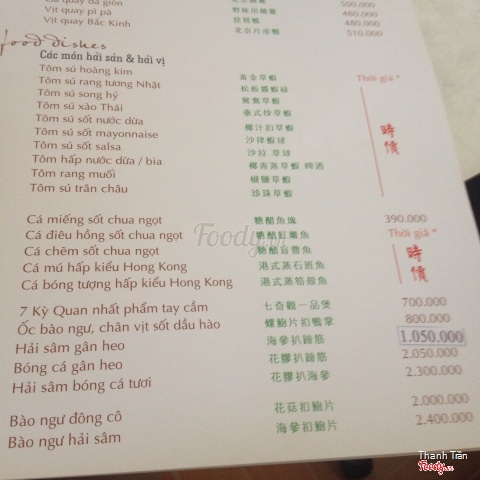 da giòn 500.000
Vịt quay pì pà 琵琶鴨 480.000
Vịt quay Bắc Kinh 北京片皮鴨 510.000
food dishes
Các món hải sản & hải vị
Tôm sú hoàng kim 黃金草蝦 Thời giá *
Tôm sú rang tương Nhật 松板醬蝦
Tôm sú song hỷ 鴛鴦草蝦
Tôm sú xào Thái 泰式炒草蝦
Tôm sú sốt nước dừa 椰汁扣草蝦 時價
Tôm sú sốt mayonnaise 沙律蝦球
Tôm sú sốt salsa 沙拉 草球
Tôm hấp nước dừa / bia 椰青蒸草蝦 啤酒
Tôm rang muối 椒鹽草蝦
Tôm sú trân châu 珍珠草蝦
Cá miếng sốt chua ngọt 糖醋魚塊 390.000
Cá điêu hồng sốt chua ngọt 糖醋紅雕魚 Thời giá *
Cá chẽm sốt chua ngọt 糖醋盲曹魚
Cá mú hấp kiểu Hong Kong 港式蒸石班魚 時價
Cá bóng tượng hấp kiểu Hong Kong 港式蒸筍殼魚
7 Kỳ Quan nhất phẩm tay cầm 七奇觀一品煲 700.000
Ốc bào ngư, chân vịt sốt dầu hào 螺鮑片扣鴨掌 800.000
Hải sâm gân heo 海參扒蹄筋 1.050.000
Bóng cá gân heo 花膠扒蹄筋 2.050.000
Hải sâm bóng cá tươi 花膠扒海參 2.300.000
Bào ngư đông cô 花菇扣鮑片 2.000.000
Bào ngư hải sâm 海參扣鮑片 2.400.000
Foody.vn
Thanh Tân
Foody.vn